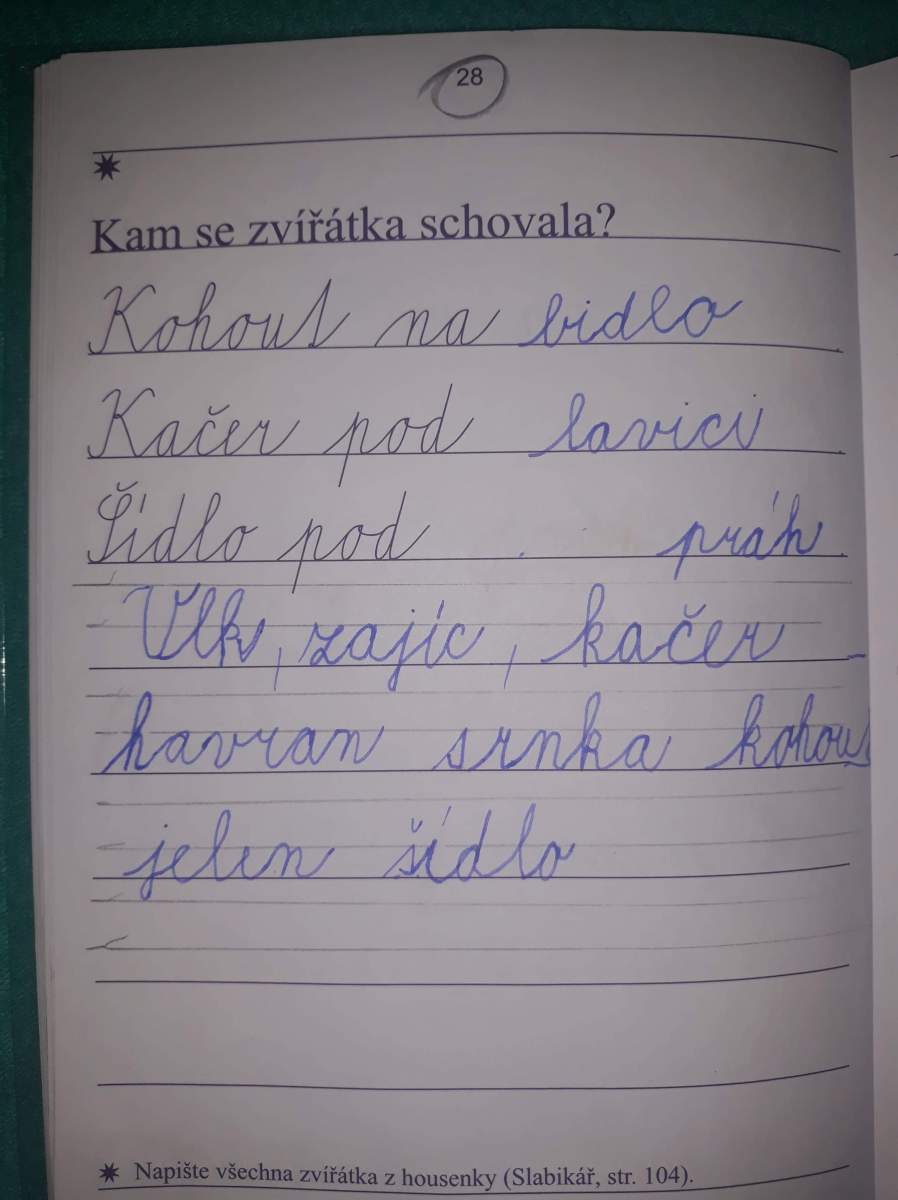 28
✷
Kam se zvířátka schovala?
Kohout na bidlo
Kačer pod lavici
Šídlo pod práh
Vlk, zajíc, kačer
havran srnka kohou
jelen šídlo
✷ Napište všechna zvířátka z housenky (Slabikář, str. 104).